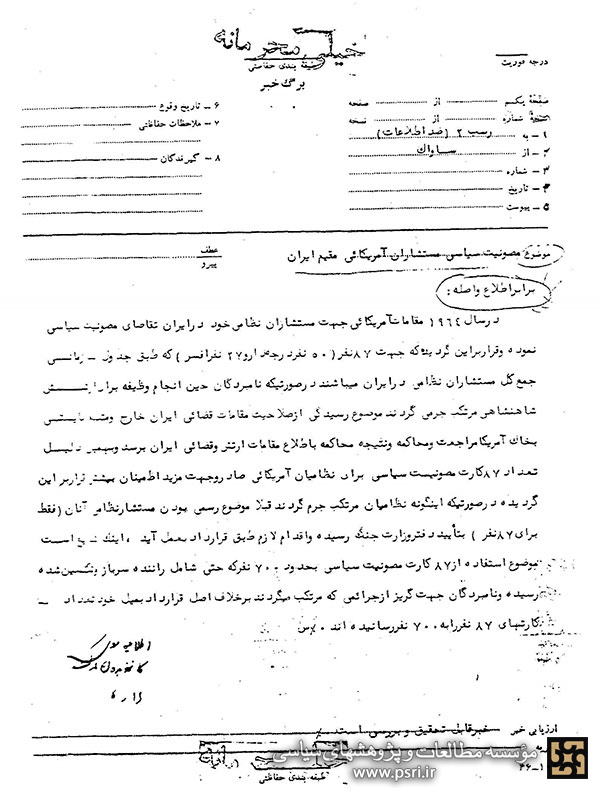 خیلی محرمانه
طبقه بندی حفاظتی
درجه فوریت
برگ خبر
صفحهٔ یکم از صفحه
نسخهٔ شماره از نسخه
۱ - به رسب ۲ (ضد اطلاعات)
۲ - از ساواک
۳ - شماره
۴ - تاریخ
۵ - پیوست
۶ - تاریخ وقوع
۷ - ملاحظات حفاظتی
۸ - گیرندگان
موضوع مصونیت سیاسی مستشاران آمریکائی مقیم ایران
عطف
پیرو
برابر اطلاع واصله :
در سال ۱۹۶۴ مقامات آمریکائی جهت مستشاران نظامی خود در ایران تقاضای مصونیت سیاسی
نموده و قرار بر این گردید که جهت ۸۷ نفر (۵۰ نفر درجه دار و ۲۷ نفر افسر) که طبق جدول - زمانسی
جمع کل مستشاران نظامی در ایران میباشند در صورتیکه نامبردگان حین انجام وظیفه برای ارتش
شاهنشاهی مرتکب جرمی گردند موضوع رسیدگی از صلاحیت مقامات قضائی ایران خارج و
بخاک آمریکا مراجعت و محاکمه و نتیجه محاکمه باطلاع مقامات ارتش و قضائی ایران برسد و بهمین دلیل
تعداد ۸۷ کارت مصونیت سیاسی برای نظامیان آمریکائی صادر و جهت مزید اطمینان بیشتر قرار بر این
گردیده در صورتیکه اینگونه نظامیان مرتکب جرم گردند قبلا موضوع رسمی بودن مستشار نظامی آنان (فقط
برای ۸۷ نفر) بتأیید دفتر وزارت جنگ رسیده و اقدام لازم طبق قرارداد بعمل آید ، اینک است
موضوع استفاده از ۸۷ کارت مصونیت سیاسی بحدود ۷۰۰ نفر که حتی شامل راننده سرباز و تکنسین شده
رسیده و نامبردگان جهت گریز از جرائمی که مرتکب میگردند برخلاف اصل قرارداد بمیل خود تعداد -
کارتهای ۸۷ نفر را به ۷۰۰ نفر رسانیده اند .
اطلاعیه
ارزیابی خبر خبر قابل تحقیق و بررسی است .
طبقه بندی حفاظتی
۳۶-۱
مؤسسه مطالعات و پژوهشهای سیاسی
www.psri.ir